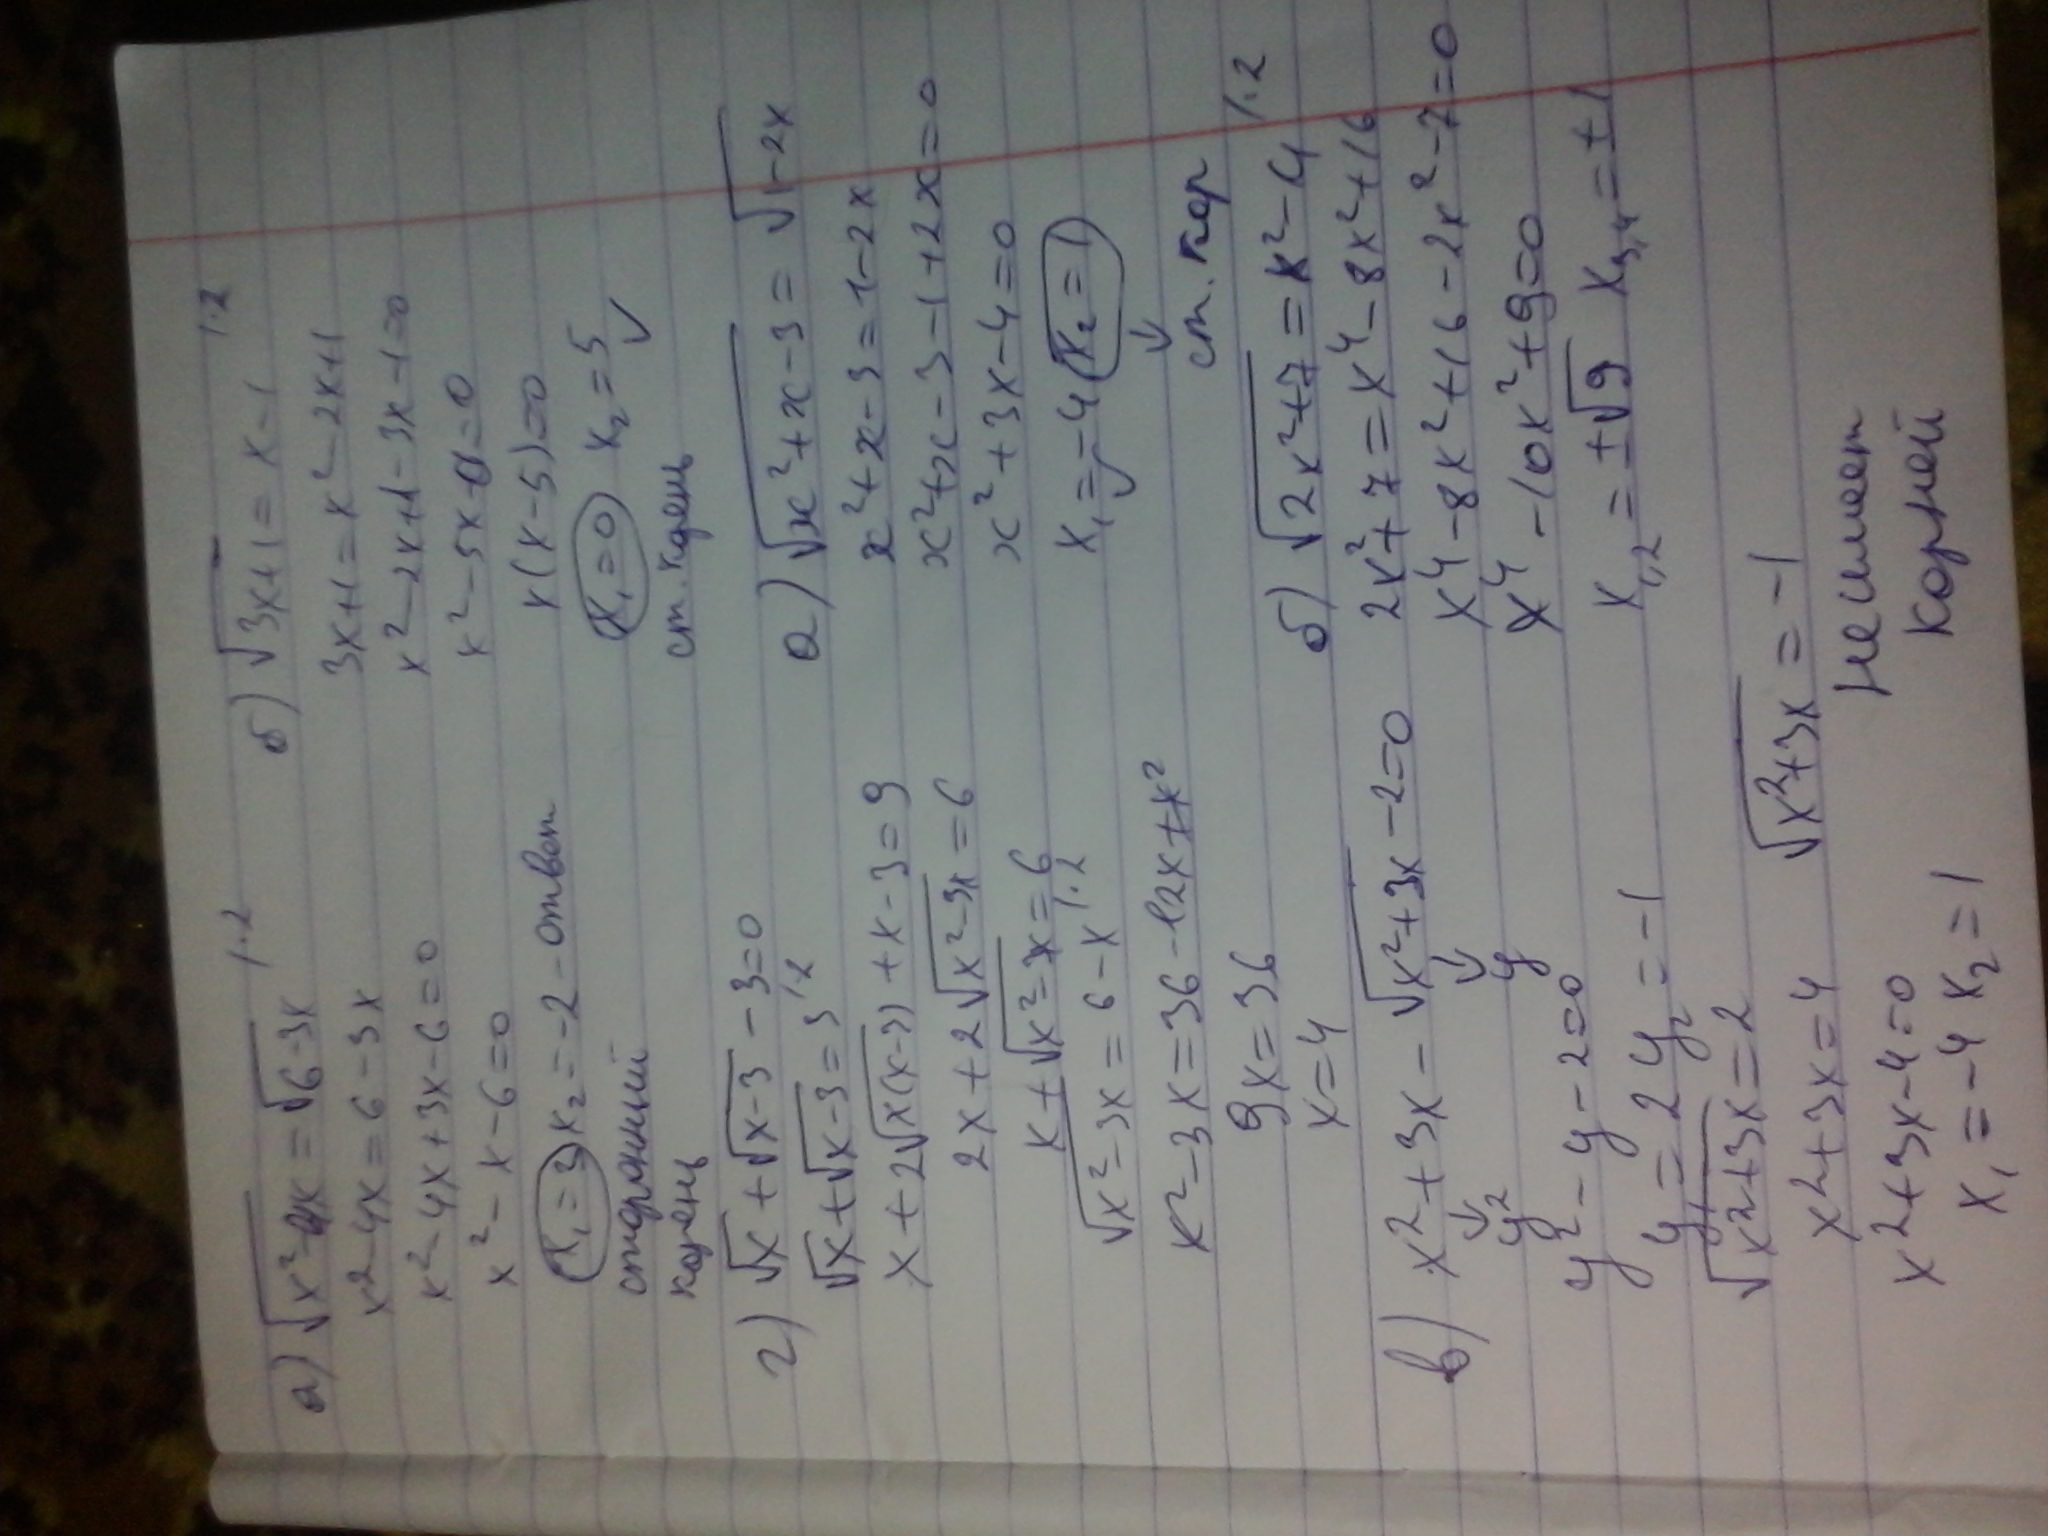 а) √(x²-4x) = √(6-3x) |·2
x²-4x = 6-3x
x²-4x+3x-6=0
x²-x-6=0
x₁=3 x₂=-2 - ответ
сторонний
корень
б) √(3x+1) = x-1 |·2
3x+1 = x²-2x+1
x²-2x+1-3x-1=0
x²-5x-0=0
x(x-5)=0
x₁=0 x₂=5 ✓
ст. корень
г) √x + √(x-3) - 3=0
√x + √(x-3) = 3 |·2
x + 2√(x(x-3)) + x-3 = 9
2x + 2√(x²-3x) = 6
x + √(x²-3x) = 6
√(x²-3x) = 6-x |·2
x²-3x = 36-12x+x²
9x = 36
x=4
а) √(x²+x-3) = √(1-2x)
x²+x-3 = 1-2x
x²+x-3-1+2x=0
x²+3x-4=0
x₁=-4 x₂=1
✓ ↓
ст. кор
б) √(2x²+7) = x²-4 |·2
2x²+7 = x⁴-8x²+16
x⁴-8x²+16-2x²-7=0
x⁴-10x²+9=0
x₁,₂ = ±√9 x₃,₄ = ±1
в) x²+3x - √(x²+3x) -2=0
↓ ↓
y² y
y²-y-2=0
y₁=2 y₂=-1
√(x²+3x) = 2
x²+3x=4
x²+3x-4=0
x₁=-4 x₂=1
√(x²+3x) = -1
не имеет
корней